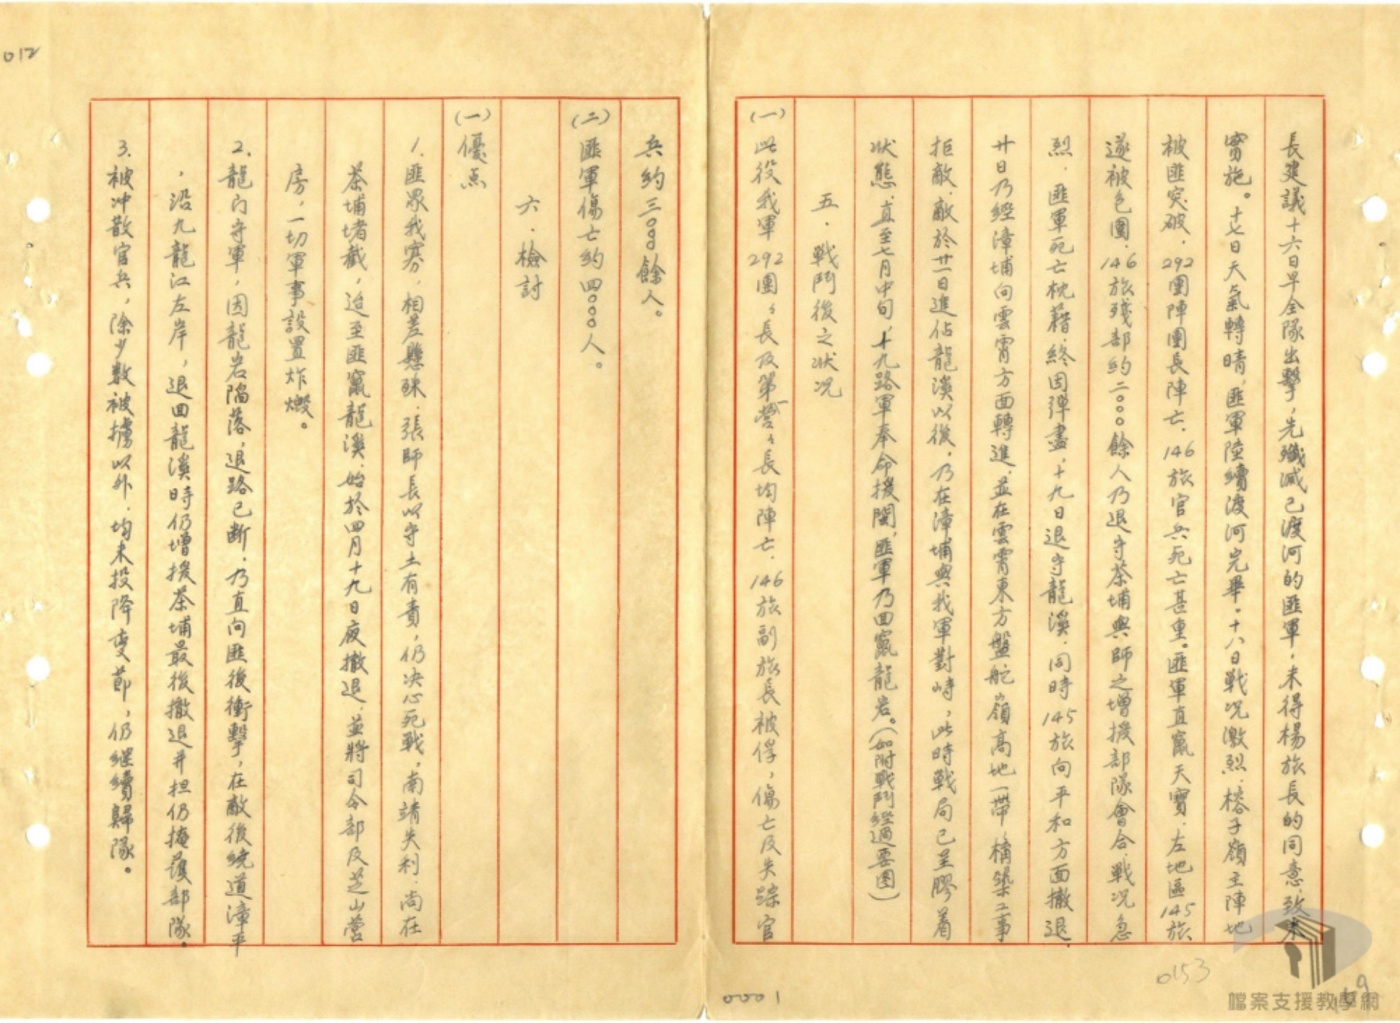 長建議十六日早全隊出擊，先殲滅已渡河的匪軍，未得楊旅長的同意，致未
實施。十七日天氣轉晴，匪軍陸續渡河完畢。十八日戰況激烈，榕子嶺主陣地
被匪突破，292團陣團長陣亡，146旅官兵死亡甚重。匪軍直竄天寶，左地區145旅
遂被包圍，146旅殘部約二000餘人乃退守茶埔與師之增援部隊會合，戰況急
烈，匪軍死亡枕藉，終因彈盡，十九日退守龍溪，同時145旅向平和方面撤退。
廿日乃經漳埔向雲霄方面轉進，並在雲霄東方盤舵嶺高地一帶，構築工事
拒敵，敵於廿一日進佔龍溪以後，乃在漳埔與我軍對峙，此時戰局已呈膠着
狀態，直至七月中旬，十九路軍奉命援閩，匪軍乃回竄龍岩。（如附戰鬥經過要圖）
五．戰鬥後之狀況
(一)此役我軍292團團長及第一營營長均陣亡，146旅副旅長被俘，傷亡及失踪官
兵約三000餘人。
(二)匪軍傷亡約四000人。
六．檢討
(一)優点
1.匪眾我寡，相差懸殊，張師長以守土有責，仍決心死戰，南靖失利，尚在
茶埔堵截，迨至匪竄龍溪，始於四月十九日夜撤退，並將司令部及芝山營
房，一切軍事設置炸燬。
2.龍門守軍，因龍岩陷落，退路已斷，乃直向匪後衝擊，在敵後繞道漳平
，沿九龍江左岸，退回龍溪時仍增援茶埔最後撤退并担仍掩護部隊。
3.被冲散官兵，除少數被擄以外，均未投降变節，仍继續歸隊。
012
0001
0153
檔案支援教學網